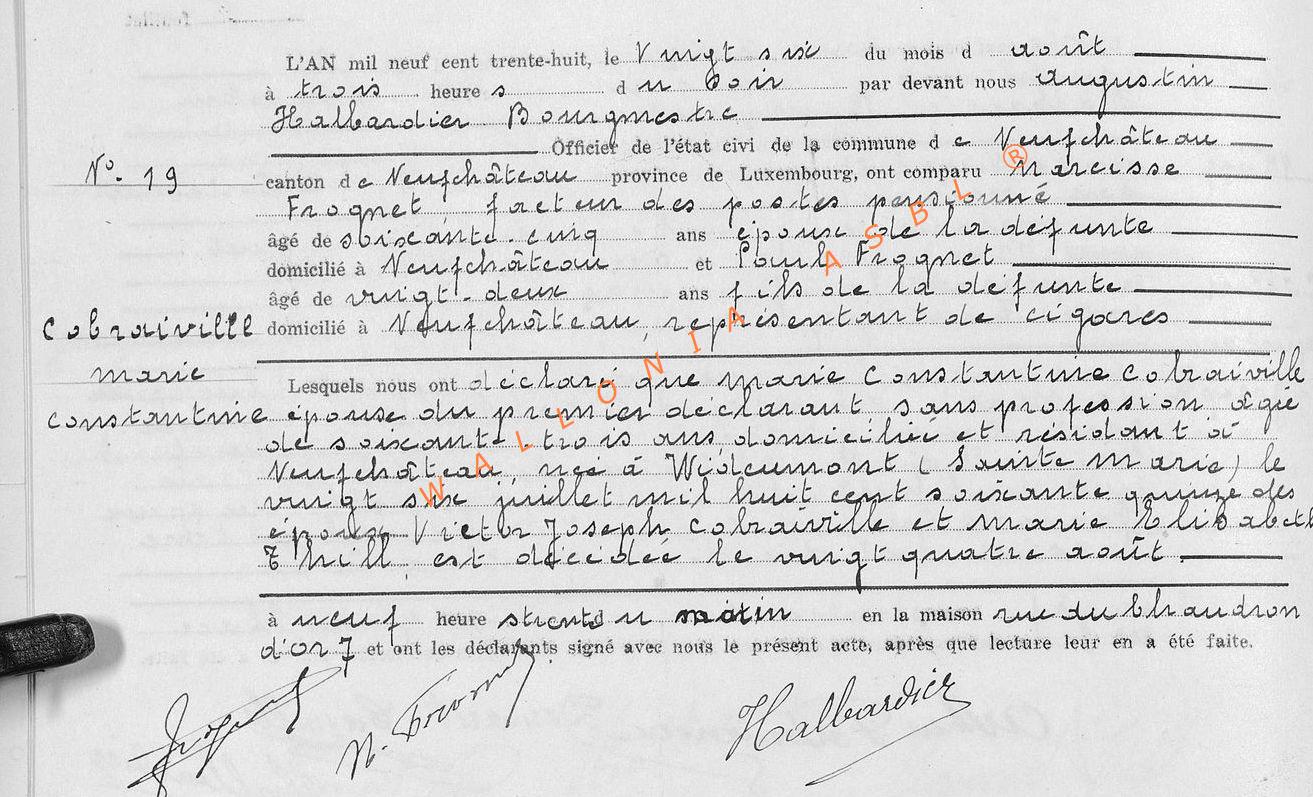 L'AN mil neuf cent trente-huit, le Vingt six du mois d août
à trois heure s d u soir par devant nous Augustin
Halbardier Bourgmestre
Officier de l'état civi de la commune d e Neufchâteau
N°. 19
canton d e Neufchâteau province de Luxembourg, ont comparu Narcisse
Frognet facteur des postes pensionné
âgé de soixante-cinq ans époux de la défunte
domicilié à Neufchâteau et Paul Frognet
âgé de vingt-deux ans fils de la défunte
domicilié à Neufchâteau, représentant de cigares
Cobraiville
marie
constantine
Lesquels nous ont déclaré que marie Constantine Cobraiville
épouse du premier déclarant sans profession âgée
de soixante-trois ans domiciliée et résidant à
Neufchâteau, née à Wideumont (Sainte marie) le
vingt six juillet mil huit cent soixante quinze des
époux Victor Joseph Cobraiville et Marie Elisabeth
Thill est décédée le vingt quatre août
à neuf heure s trente d u matin en la maison rue du Chaudron
d'or 7 et ont les déclarants signé avec nous le présent acte, après que lecture leur en a été faite.
Halbardier
WALLONIA ASBL ®